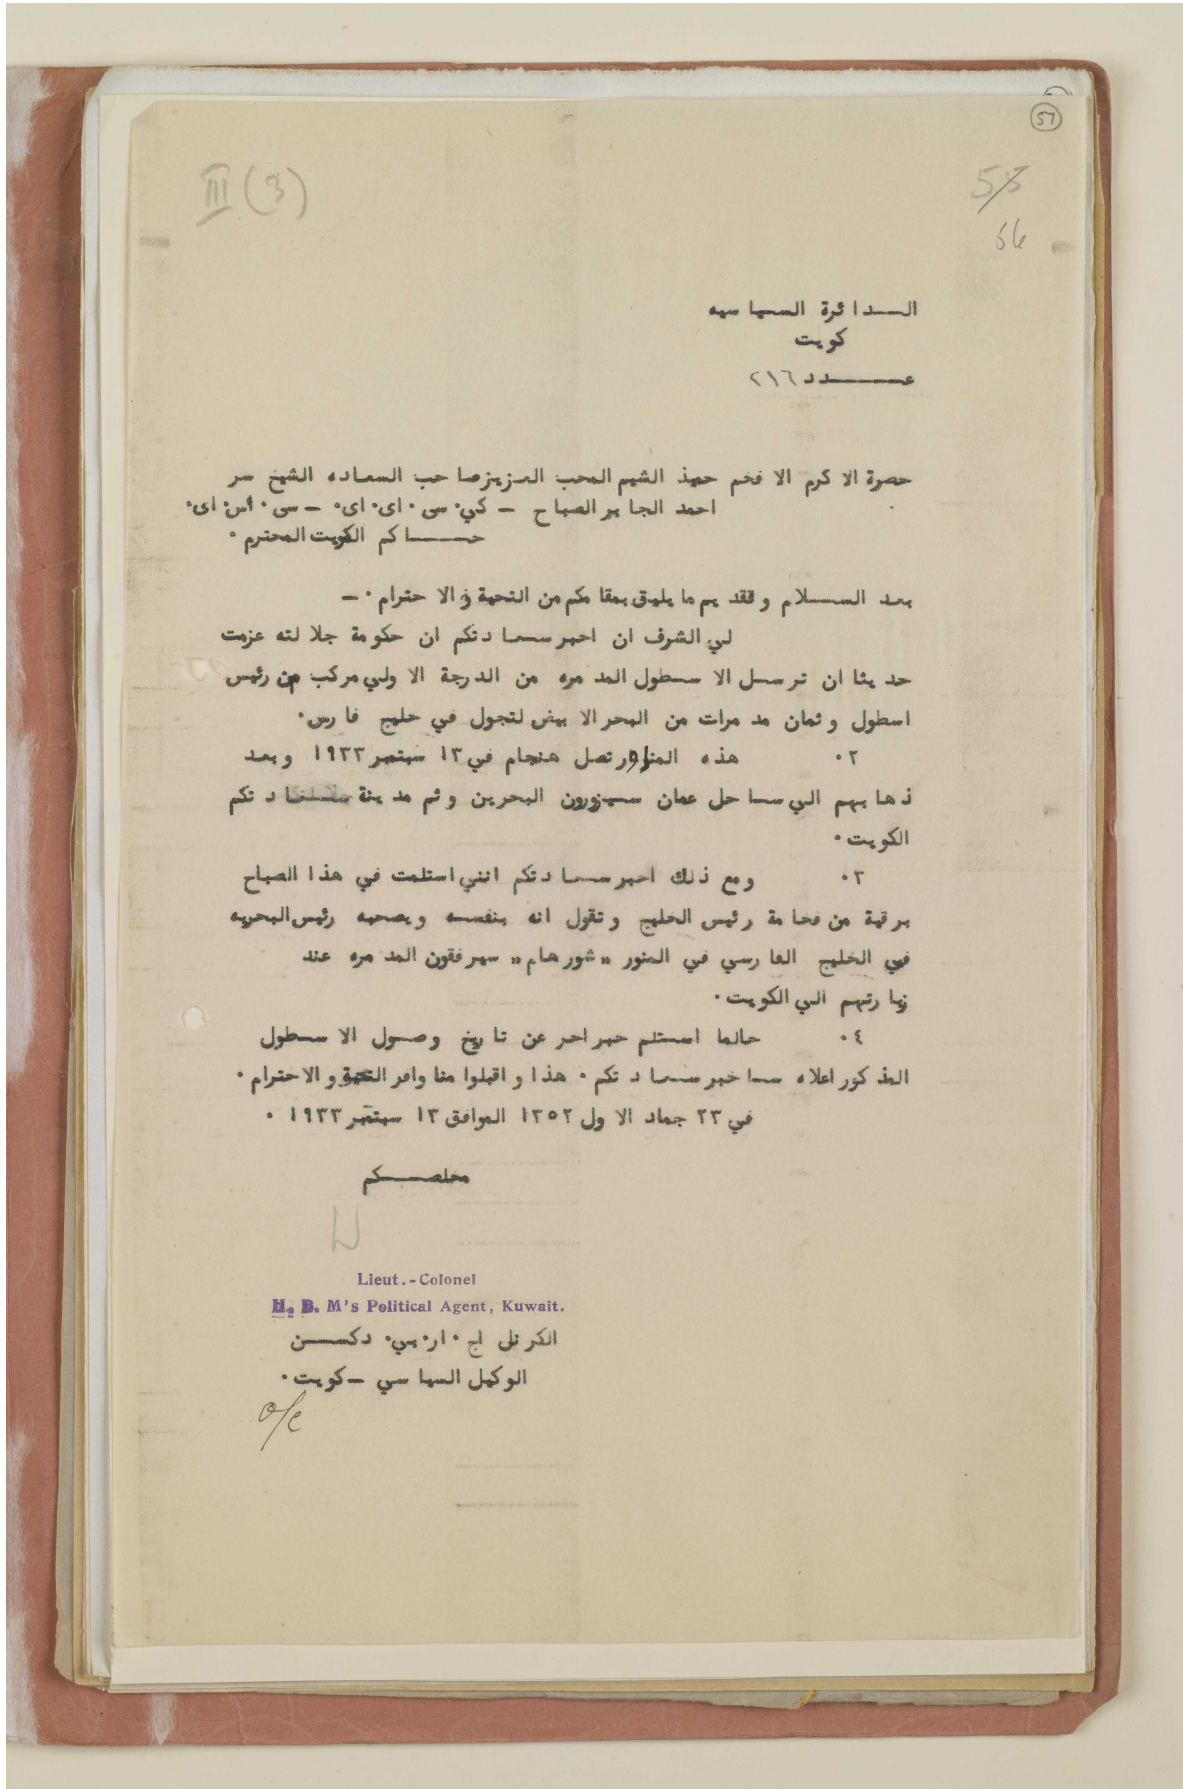 57
III (3)
55
56
الــدائرة السياسيه
كويت
عــــدد ٢١٦
حصرة الاكرم الافخم حميذ الشيم المحب العزيزصاحب السعاده الشيخ سر
احمد الجابر الصباح – كي٠ سى٠ اى٠ اى٠ – سى٠ أس٠ اى٠
حــــاكم الكويت المحترم ٠
بعد الســلام وتقديم ما يليق بمقامكم من التحية و الاحترام ٠ –
لي الشرف ان احبر سعــادتكم ان حكومة جلالته عزمت
حديثا ان ترسل الاسطول المدمره من الدرجة الاولي مركب من رئيس
اسطول وثمان مدمرات من البحر الابيض لتجول في خليج فارس٠
٢٠ هذه المناور تصل هنجام في ١٣ سبتمبر ١٩٣٣ وبعد
ذهابهم الي ساحل عمان سيزورون البحرين وثم مدينة سعادتكم
الكويت٠
٣٠ ومع ذلك احبر سعــادتكم انني استلمت في هذا الصباح
برقية من فحامة رئيس الخليج وتقول انه بنفسه ويصحبه رئيس البحريه
في الخليج الفارسي في المنور "شورهام" سيرفقون المدمره عند
زيارتهم الي الكويت٠
٤٠ حالما استلم حبر احر عن تاريخ وصول الاسطول
المذكور اعلاه ساخبر سعــادتكم ٠ هذا واقبلوا منا وافر التحية و الاحترام ٠
في ٢٣ جماد الاول ١٣٥٢ الموافق ١٣ سبتمبر ١٩٣٣ ٠
محلصــكم
Lieut.-Colonel
H. B. M's Political Agent, Kuwait.
الكرنل اج٠ ار٠ بي٠ دكســن
الوكيل السياسي – كويت٠
o/c